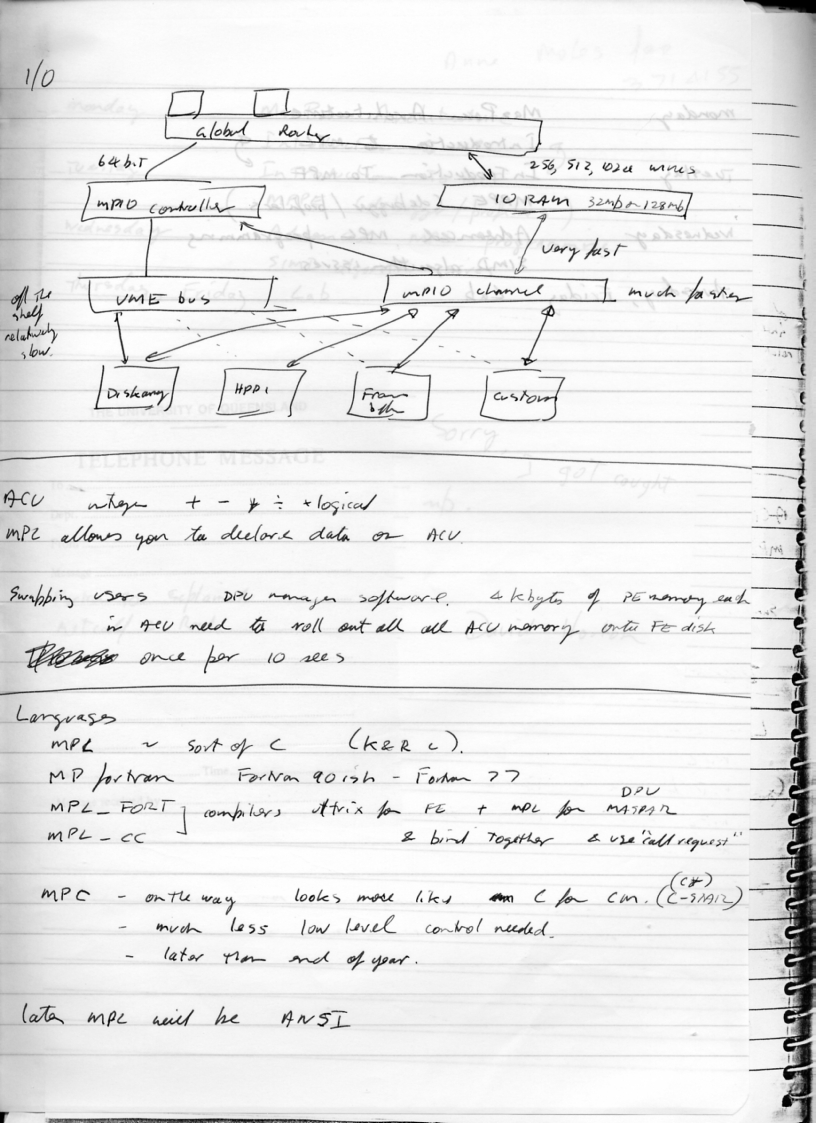 I/O
Global Router
64bit
256, 512, 1024 wires
MPIO controller
IO RAM 32Mb or 128Mb
very fast
VME bus
MPIO channel
much faster
off the
shelf
relatively
slow.
Diskarray
HPPI
Frame
Custom
TELEPHONE MESSAGE
ACU integer + - * ÷ + logical
MPL allows you to declare data on ACU.
Swapping users DPU manager software. 4 kbytes of PE memory each
in ACU need to roll out all all ACU memory onto FE disk
once per 10 secs
Languages
MPL ~ sort of C (K&R C).
MP fortran Fortran 90ish - Fortran 77
DPU
MPL_FORT ] compilers Ultrix for FE + MPL for MASPAR
MPL_CC & bind together & use "call request"
(C*)
MPC - on the way looks more like C for CM. (C-STAR)
- much less low level control needed.
- later than end of year.
later MPL will be ANSI